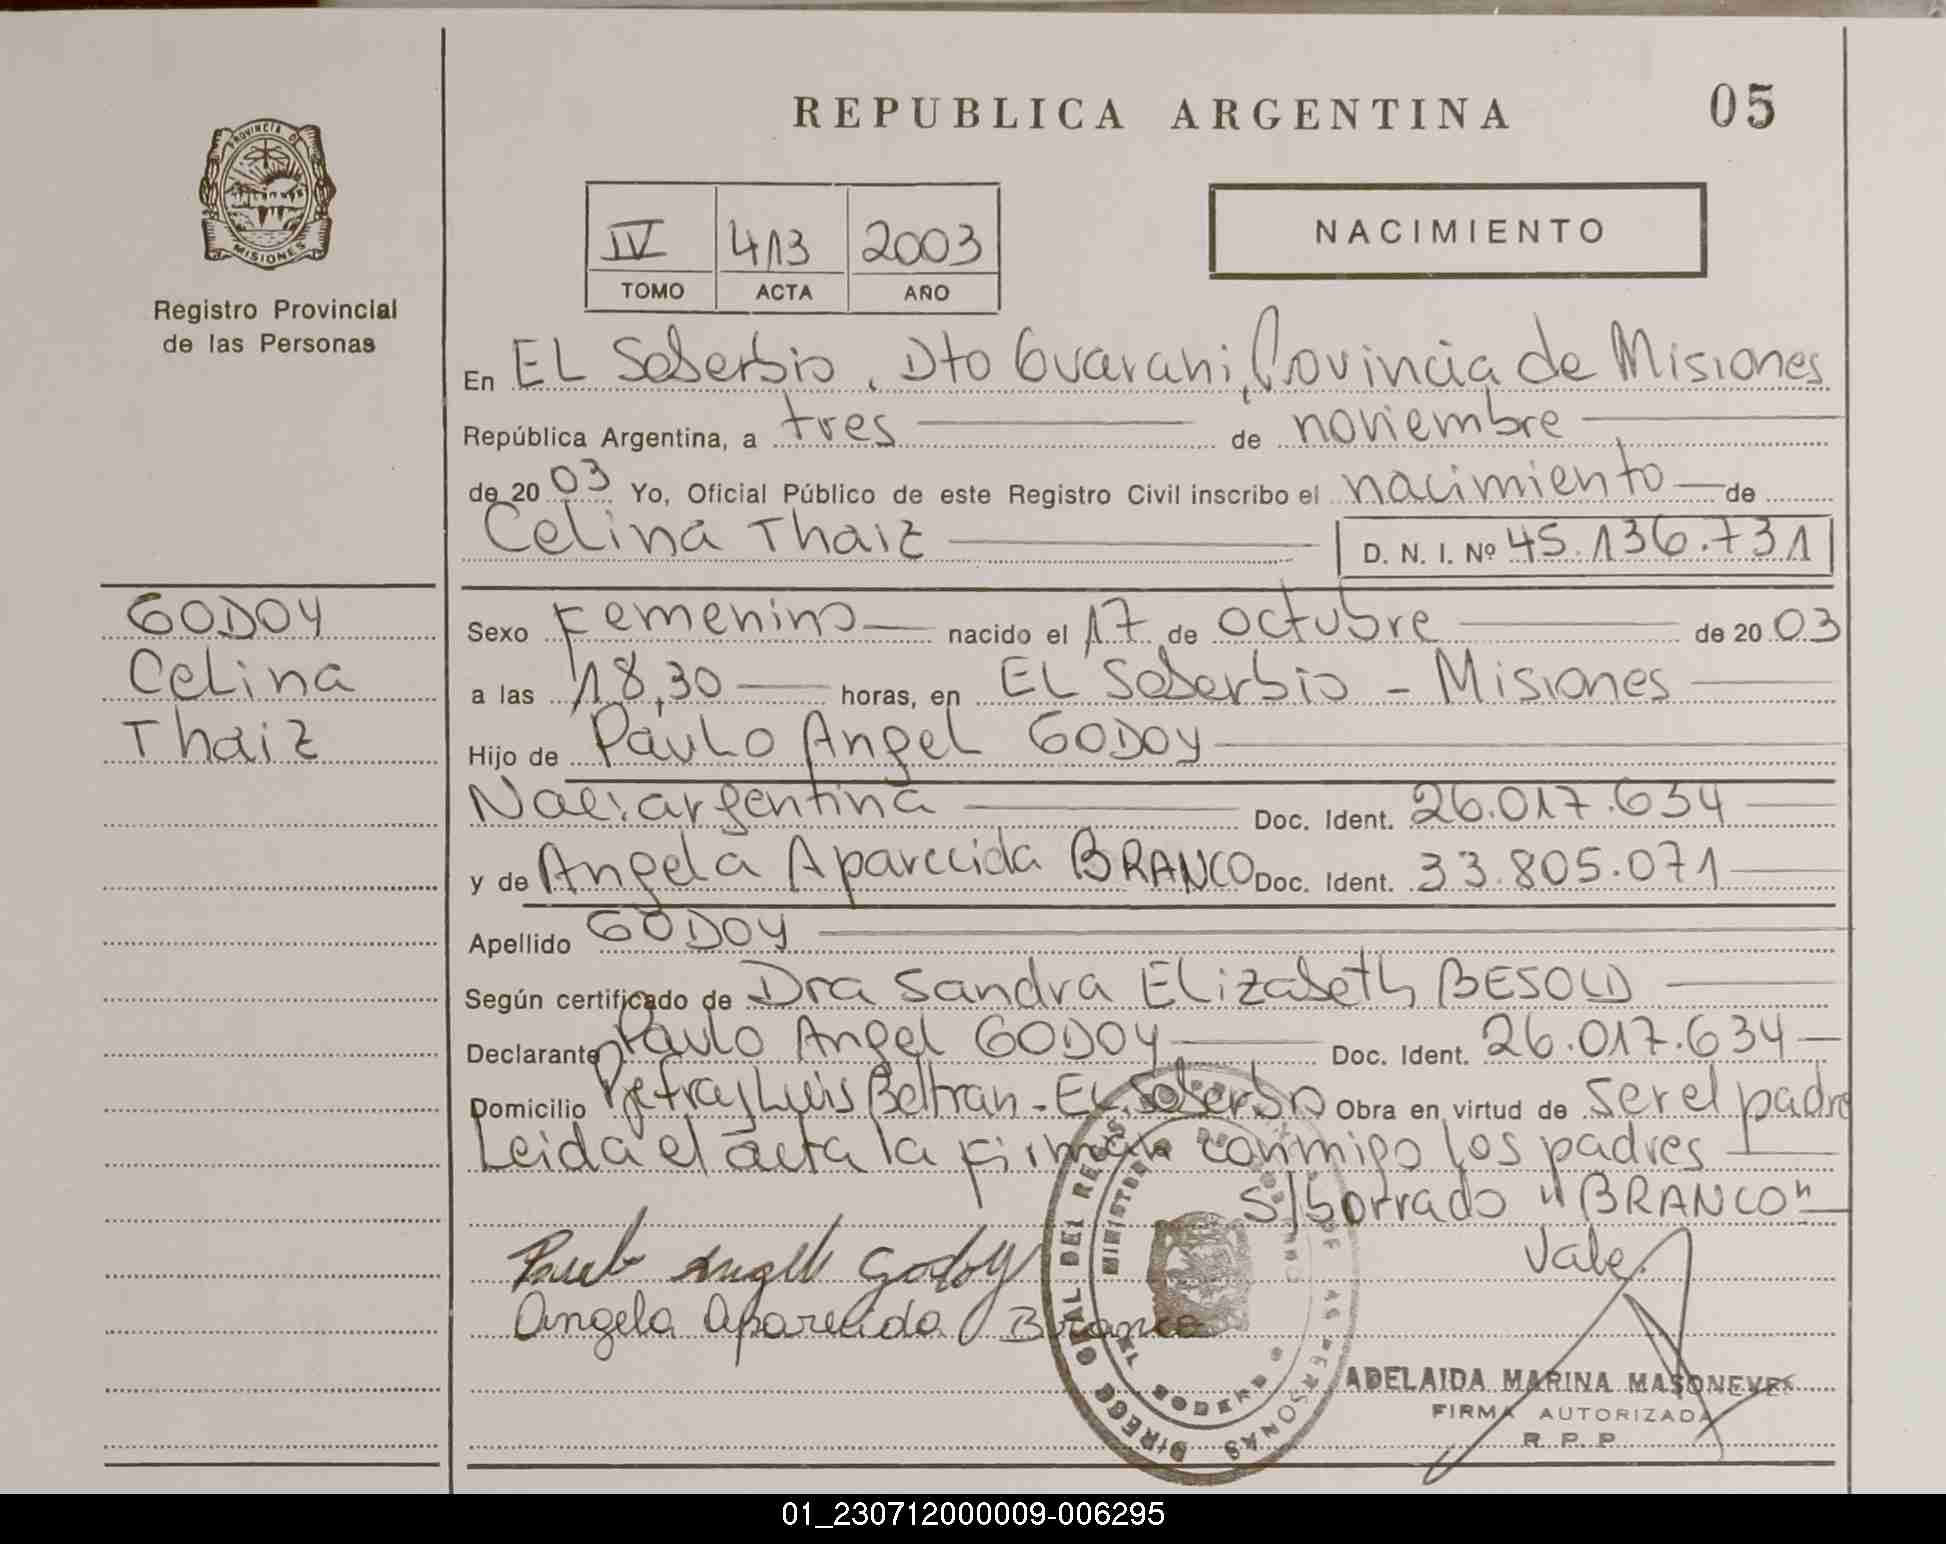 REPUBLICA ARGENTINA
05
PROVINCIA DE
MISIONES
Registro Provincial
de las Personas
IV 413 2003
TOMO ACTA AÑO
NACIMIENTO
En EL Soberbio, Dto Guarani, Provincia de Misiones
República Argentina, a tres de noviembre
de 2003 Yo, Oficial Público de este Registro Civil inscribo el nacimiento de
Celina Thaiz D. N. I. Nº 45.136.731
GODOY
Celina
Thaiz
Sexo Femenino nacido el 17 de octubre de 2003
a las 18,30 horas, en EL Soberbio - Misiones
Hijo de Paulo Angel GODOY
Nac: argentina Doc. Ident. 26.017.634
y de Angela Aparecida BRANCO Doc. Ident. 33.805.071
Apellido GODOY
Según certificado de Dra Sandra Elizabeth BESOLD
Declarante Paulo Angel GODOY Doc. Ident. 26.017.634
Domicilio Luis Beltran - EL Soberbio Obra en virtud de ser el padre
Leida el acta la firman conmigo los padres
s/borrado "BRANCO"
Vale
Paulo Angel Godoy
Angela Aparecida Branco
ADELAIDA MARINA
FIRMA AUTORIZADA
R. P. P.
01_230712000009-006295